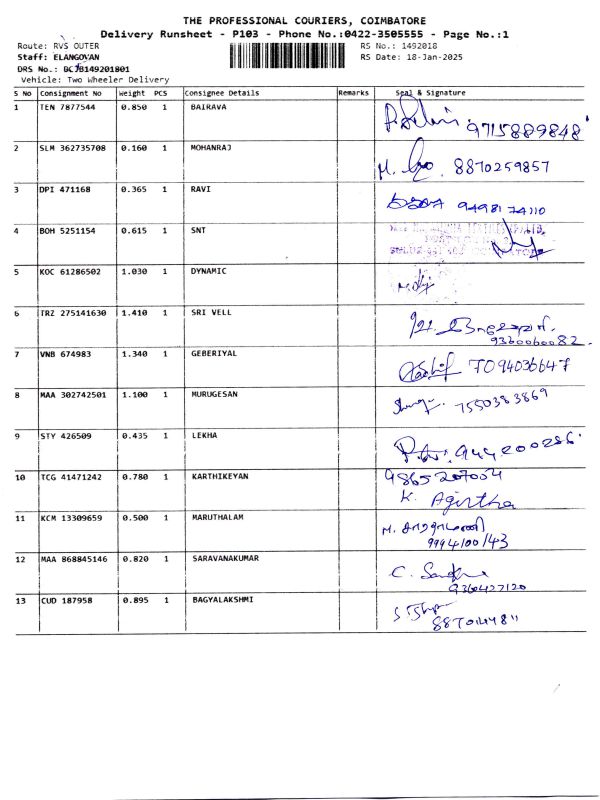 THE PROFESSIONAL COURIERS, COIMBATORE
Delivery Runsheet - P103 - Phone No.:0422-3505555 - Page No.:1
Route: RVS OUTER
RS No.: 1492018
Staff: ELANGOVAN
RS Date: 18-Jan-2025
DRS No.:
Vehicle: Two Wheeler Delivery
S No Consignment No Weight PCS Consignee Details Remarks Seal & Signature
1 TEN 7877544 0.850 1 BAIRAVA
9715889848
2 SLM 362735708 0.160 1 MOHANRAJ
M. 8870259857
3 DPI 471168 0.365 1 RAVI
9498174110
4 BOH 5251154 0.615 1 SNT
5 KOC 61286502 1.030 1 DYNAMIC
6 TRZ 275141630 1.410 1 SRI VELL
9360060082
7 VNB 674983 1.340 1 GEBERIYAL
7094036647
8 MAA 302742501 1.100 1 MURUGESAN
7550383869
9 STY 426509 0.435 1 LEKHA
10 TCG 41471242 0.780 1 KARTHIKEYAN
9865207004
K. Agirtha
11 KCM 13309659 0.500 1 MARUTHALAM
M.
9994100143
12 MAA 868845146 0.820 1 SARAVANAKUMAR
C.
9360427120
13 CUD 187958 0.895 1 BAGYALAKSHMI